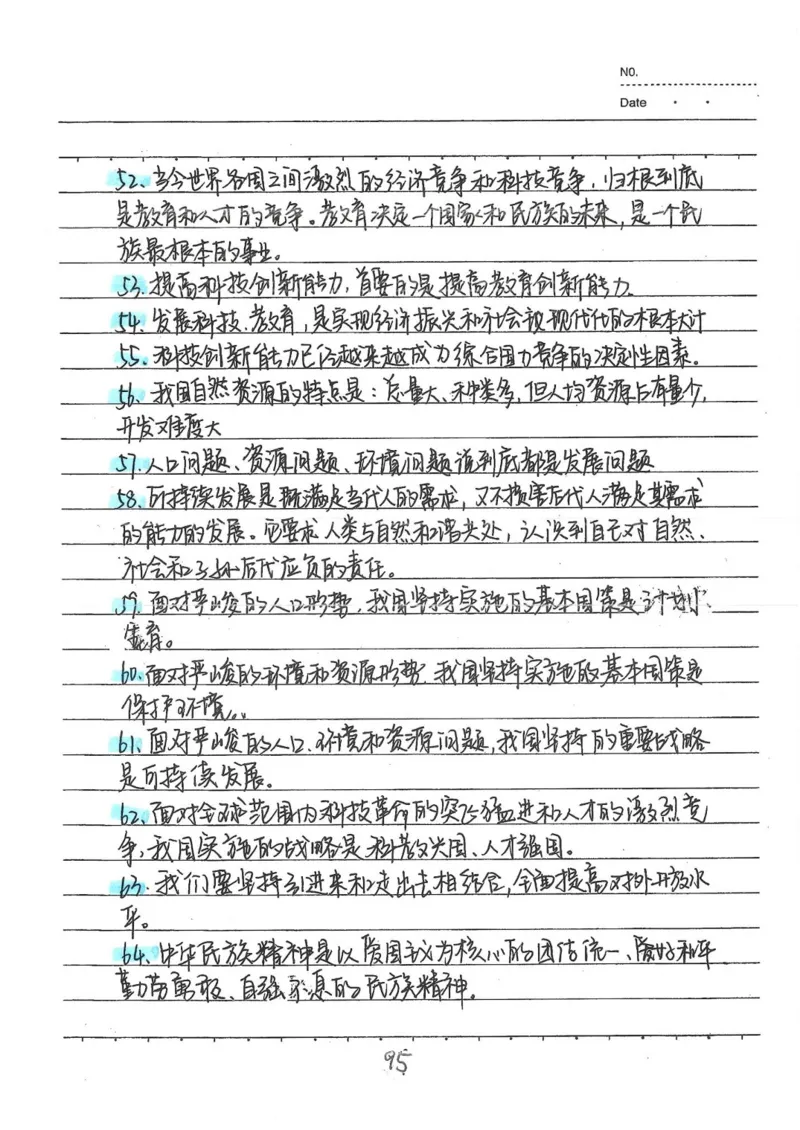 NO.
Date
52、当今世界各国之间激烈的经济竞争和科技竞争，归根到底
是教育和人才的竞争。教育决定一个国家和民族的未来，是一个民
族最根本的事业。
53、提高科技创新能力，首要的是提高教育创新能力。
54、发展科技、教育，是实现经济振兴和社会被现代化的根本大计
55、科技创新能力已经越来越成为综合国力竞争的决定性因素。
56、我国自然资源的特点是：总量大、种类多，但人均资源占有量少，
开发难度大
57、人口问题、资源问题、环境问题说到底都是发展问题
58、可持续发展是既满足当代人的需求，又不损害后代人满足其需求
的能力的发展。它要求人类与自然和谐共处，认识到自己对自然、
社会和子孙后代应负的责任。
59、面对严峻的人口形势，我国坚持实施的基本国策是计划
生育。
60、面对严峻的环境和资源形势，我国坚持实施的基本国策是
保护环境。
61、面对严峻的人口、环境和资源问题，我国坚持的重要战略
是可持续发展。
62、面对全球范围内科技革命的突飞猛进和人才的激烈竞
争，我国实施的战略是科教兴国、人才强国。
63、我们要坚持引进来和走出去相结合，全面提高对外开放水
平。
64、中华民族精神是以爱国主义为核心的团结统一、爱好和平
勤劳勇敢、自强不息的民族精神。
95